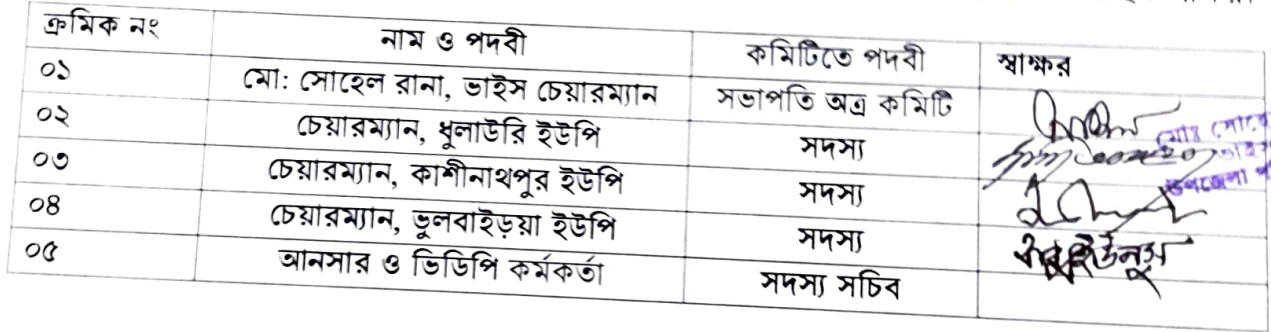 ক্রমিক নং নাম ও পদবী কমিটিতে পদবী স্বাক্ষর
০১ মো: সোহেল রানা, ভাইস চেয়ারম্যান সভাপতি অত্র কমিটি
০২ চেয়ারম্যান, ধুলাউরি ইউপি সদস্য
০৩ চেয়ারম্যান, কাশীনাথপুর ইউপি সদস্য
০৪ চেয়ারম্যান, ভুলবাইড়য়া ইউপি সদস্য
০৫ আনসার ও ভিডিপি কর্মকর্তা সদস্য সচিব